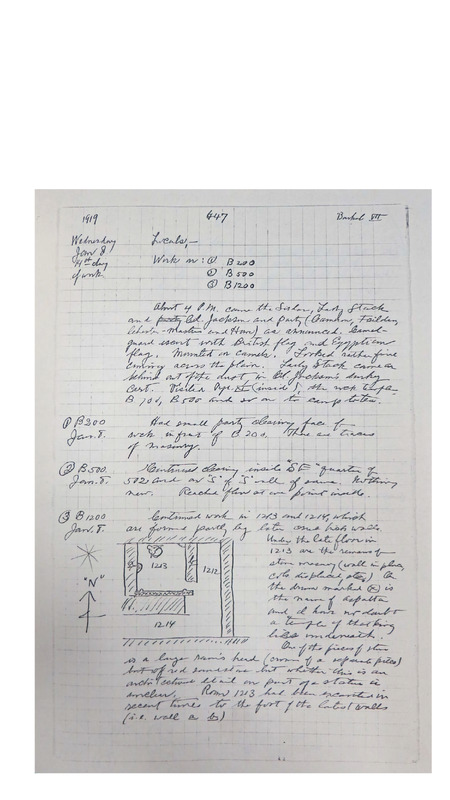 1919 647 Barkal VII
Wednesday Locals,—
Jan 8
4th day Work in: ① B 200
of work. ② B 500
③ B 1200
About 4 P.M. came the Sirdar, Lady Stack
and party Col. Jackson and party
as announced. Camel-
guard escort with British flag and Egyptian
flag. Mounted on camels. Looked rather fine
coming across the plain. Lady Stack came on
behind out of the dust in Col. Jackson's
cart. Visited (inside), the rock temple
B 700, B 500 and so on to camp later.
① B 200 Had small party clearing face of
Jan. 8. rock in front of B 200. There are traces
of masonry.
② B 500. Continued clearing inside "SE" quarter of
Jan. 8. 502 and on "S" of "S" wall of same. Nothing
new. Reached floor at one point inside.
③ B 1200 Continued work in 1213 and 1214, which
Jan. 8. are formed partly by later walls.
Under the late floor in
1213 are the remains of
stone masonry (wall in place,
displaced). On
the drum marked ⓧ is
the name of Aspalta
and I have no doubt
a temple of that king
lies underneath.
"N"
1213
1212
1214
One of the pieces of stone
is a large ram's head (crown of a separate piece)
but of red sandstone but whether this is an
architectural detail or part of a statue is
unclear. Room 1213 had been excavated in
recent times to the foot of the latest walls
(i.e. wall a b)